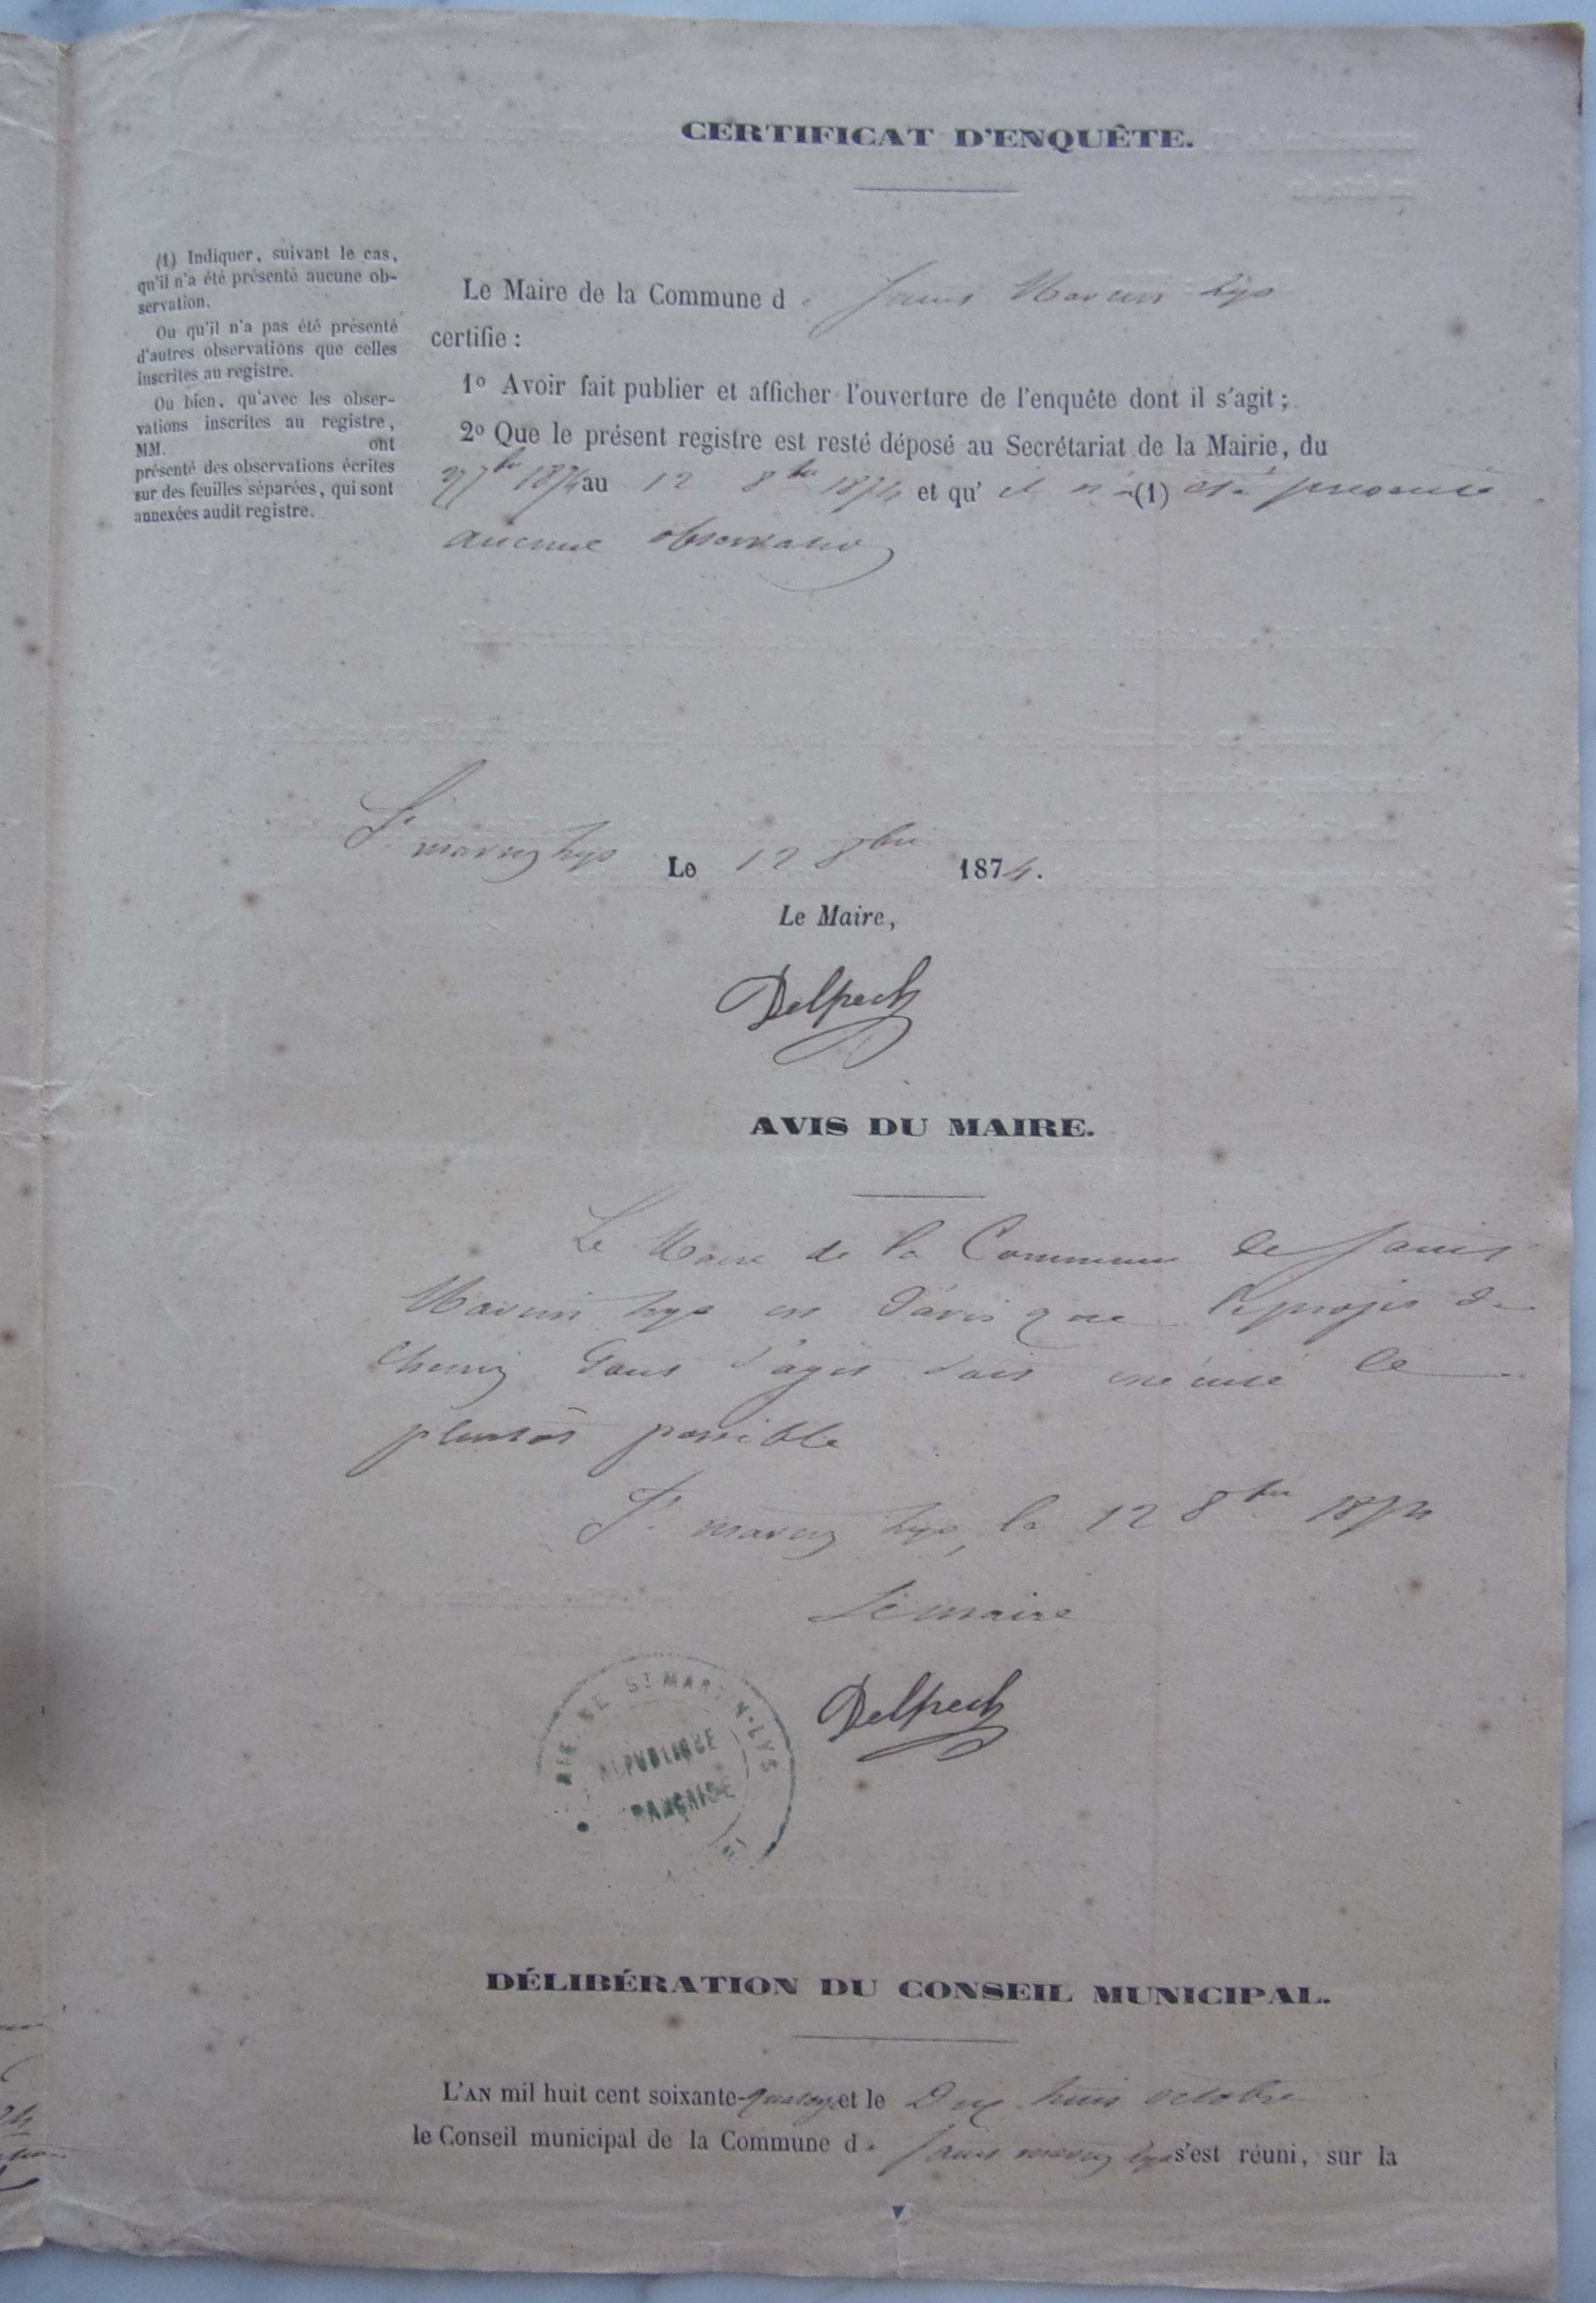 CERTIFICAT D'ENQUÊTE.
(1) Indiquer, suivant le cas,
qu'il n'a été présenté aucune ob-
servation.
Ou qu'il n'a pas été présenté
d'autres observations que celles
inscrites au registre.
Ou bien, qu'avec les obser-
vations inscrites au registre,
MM. ont
présenté des observations écrites
sur des feuilles séparées, qui sont
annexées audit registre.
Le Maire de la Commune de Saint Martin Lys
certifie :
1º Avoir fait publier et afficher l'ouverture de l'enquête dont il s'agit ;
2º Que le présent registre est resté déposé au Secrétariat de la Mairie, du
7bre 1874 au 12 8bre 1874 et qu'il n'a (1) été présenté
aucune observation
St martin Lys Le 12 8bre 1874.
Le Maire,
Delpech
AVIS DU MAIRE.
Le Maire de la Commune de Saint
Martin Lys est d'avis que le projet de
chemin dont s'agit soit exécuté le
plustôt possible
St martin Lys, le 12 8bre 1874
Le maire
Delpech
RIE DE ST MARTIN-LYS
RÉPUBLIQUE
FRANÇAISE
DÉLIBÉRATION DU CONSEIL MUNICIPAL.
L'AN mil huit cent soixante-quatorze et le Dix huit octobre
le Conseil municipal de la Commune de Saint martin Lys s'est réuni, sur la